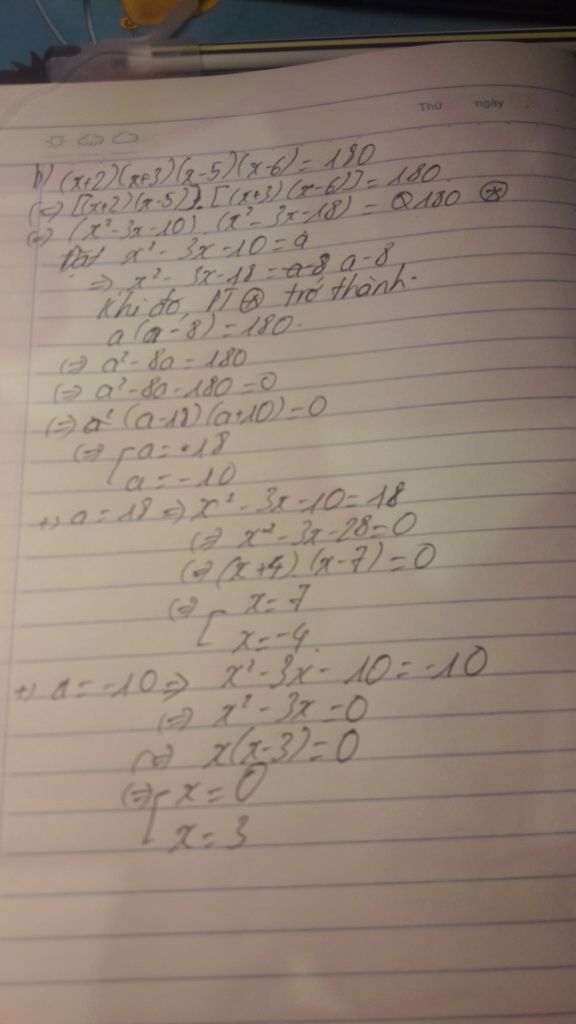 Thứ ngày
b) (x+2)(x+3)(x-5)(x-6) = 180
(=) [(x+2)(x-5)].[(x+3)(x-6)] = 180
(=) (x²-3x-10).(x²-3x-18) = 180 ⊛
Đặt x²-3x-10 = a
=> x²-3x-18 = a-8 a-8
Khi đó, PT ⊛ trở thành:
a(a-8) = 180.
(=) a²-8a = 180
(=) a²-8a-180 = 0
(=) (a-18)(a+10) = 0
(=) [ a = 18
a = -10
+) a = 18 => x²-3x-10 = 18
(=) x²-3x-28 = 0
(=) (x+4)(x-7) = 0
(=) [ x = 7
x = -4.
+) a = -10 => x²-3x-10 = -10
(=) x²-3x = 0
(=) x(x-3) = 0
(=) [ x = 0
x = 3